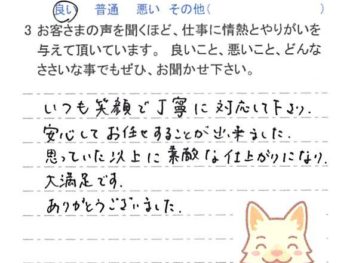 良い 普通 悪い その他( )
3 お客さまの声を聞くほど、仕事に情熱とやりがいを
与えて頂いています。 良いこと、悪いこと、どんな
ささいな事でもぜひ、お聞かせ下さい。
いつも笑顔で丁寧に対応して下より.
安心してお任せすることが出来ました.
思っていた以上に素敵な仕上がりになり.
大満足です.
ありがとうございました.